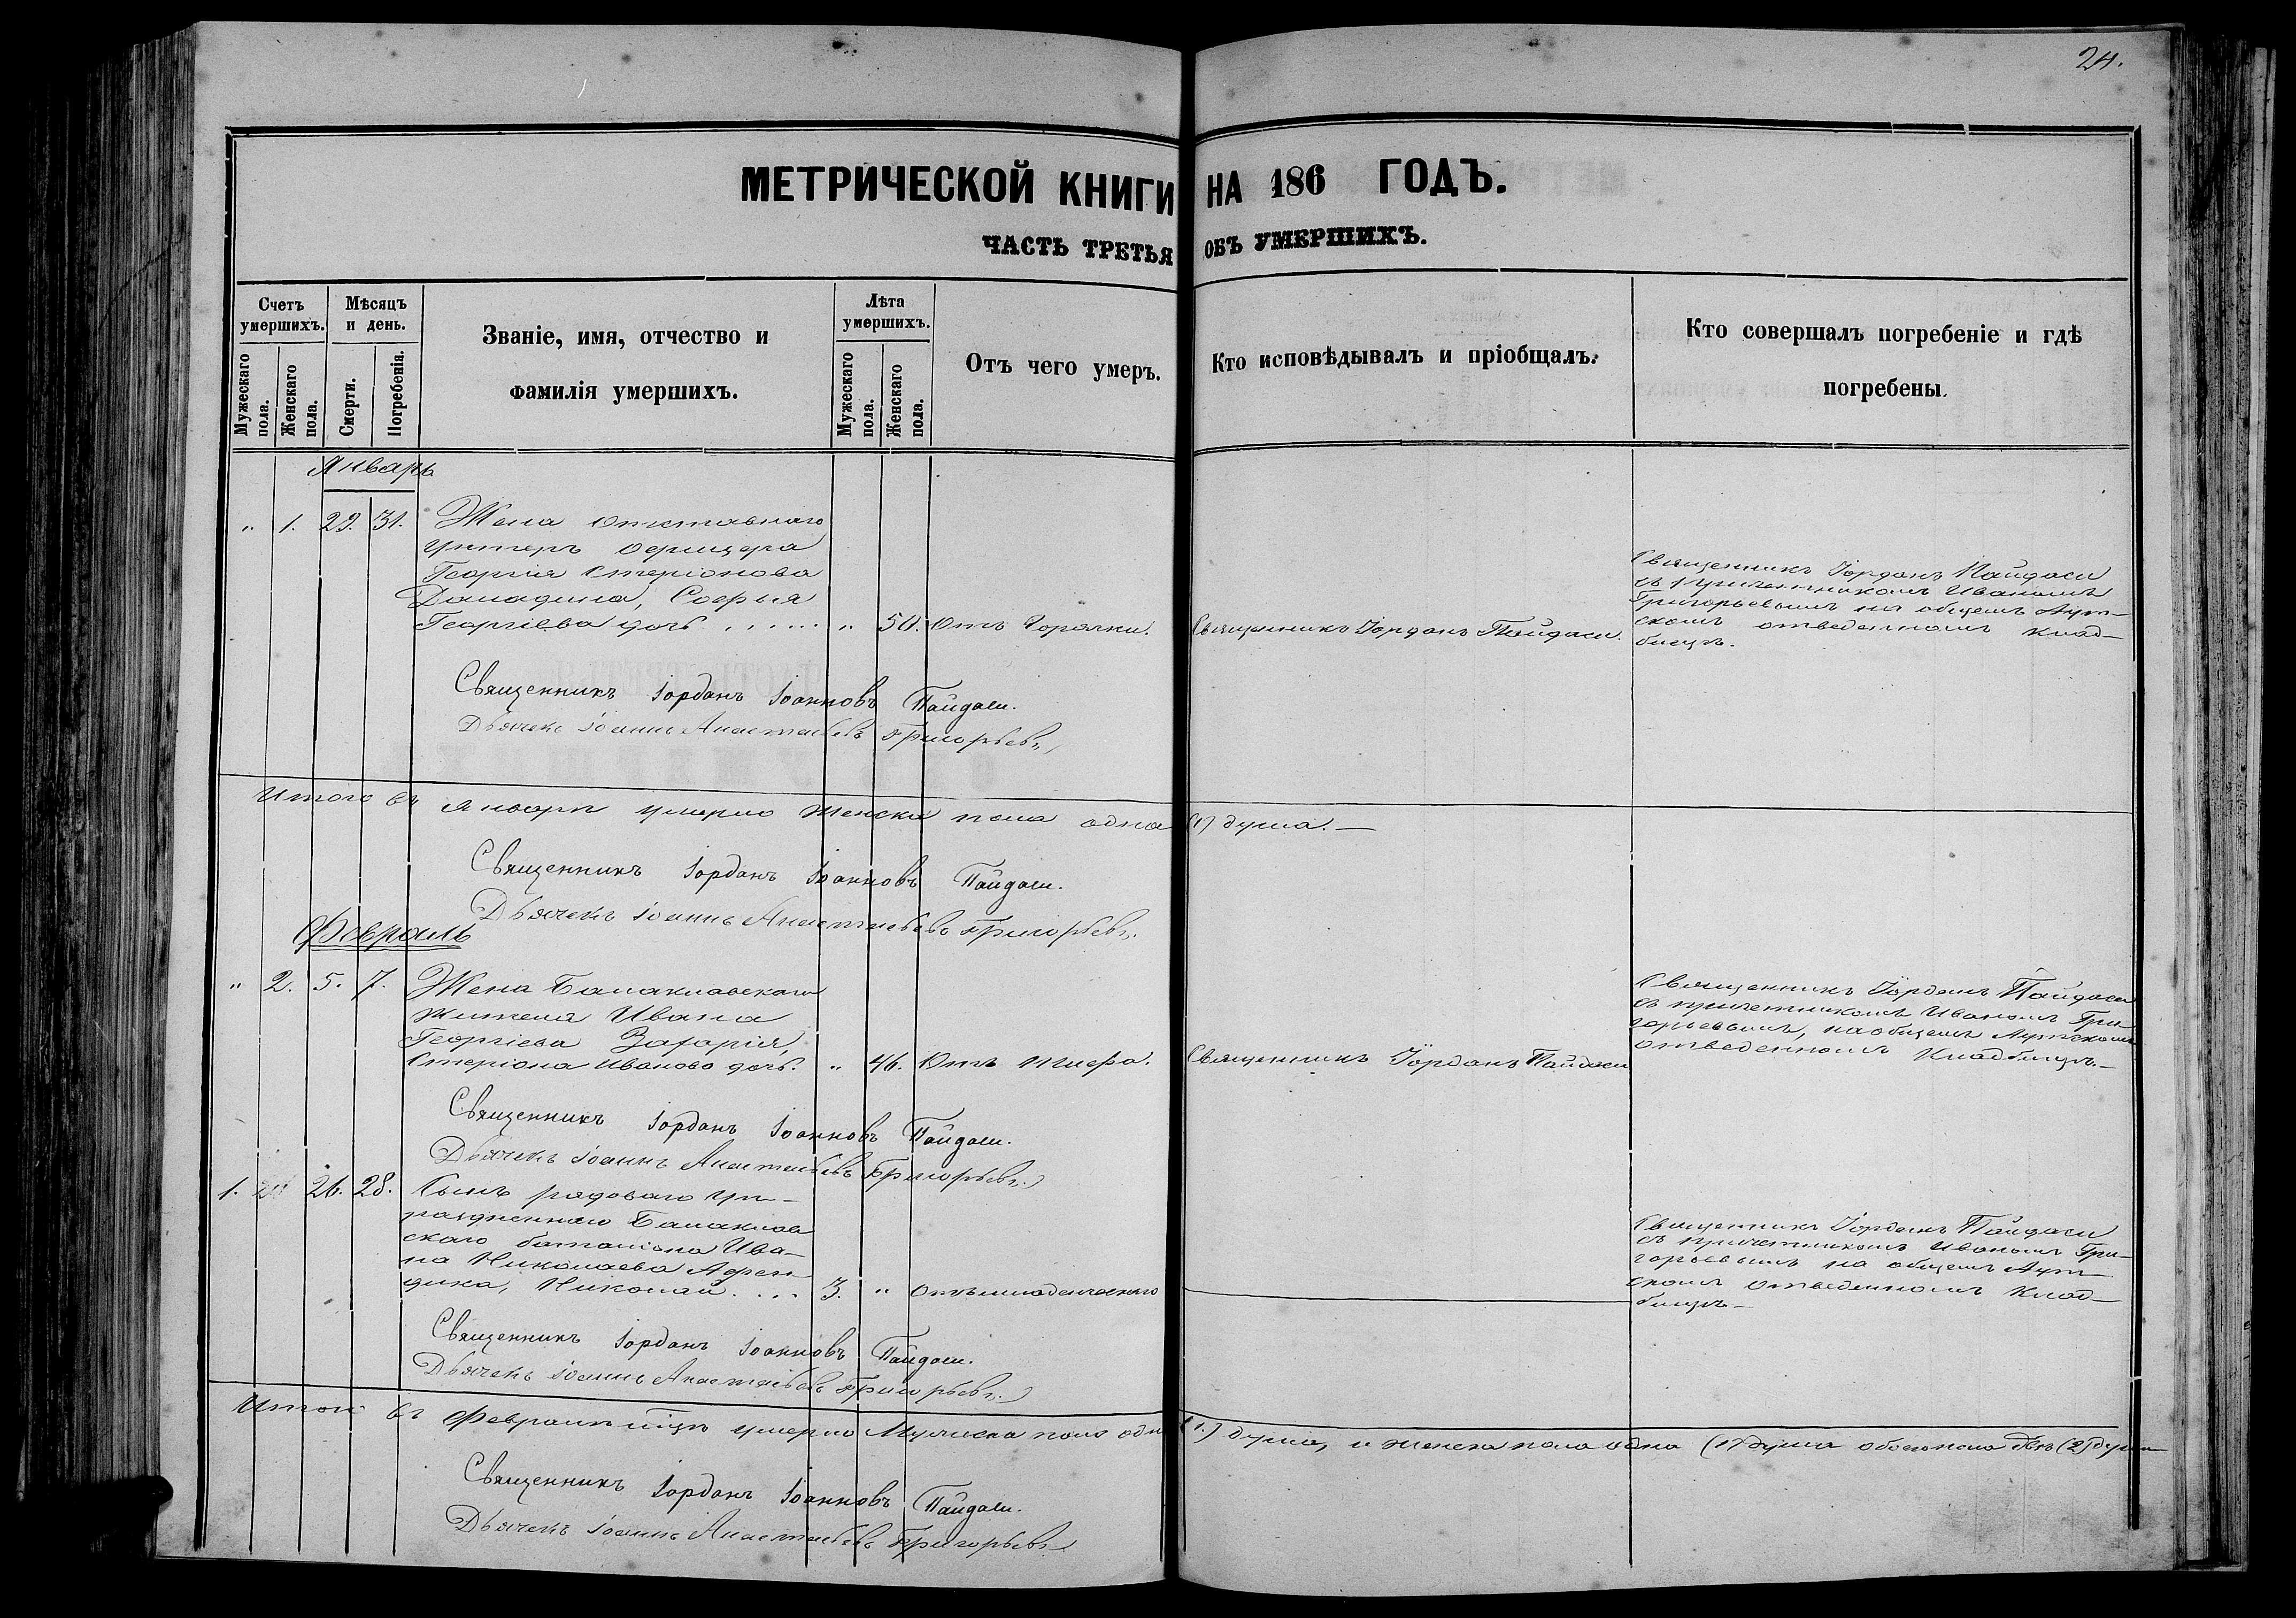 24.
МЕТРИЧЕСКОЙ КНИГИ НА 186 ГОДЪ.
ЧАСТЬ ТРЕТЬЯ ОБЪ УМЕРШИХЪ.
Счетъ умершихъ.
Мужескаго пола.
Женскаго пола.
Мѣсяцъ и день.
Смерти.
Погребенія.
Званіе, имя, отчество и
фамилія умершихъ.
Лѣта умершихъ.
Мужескаго пола.
Женскаго пола.
Отъ чего умеръ.
Кто исповѣдывалъ и пріобщалъ.
Кто совершалъ погребеніе и гдѣ
погребены.
Январь
" 1. 29. 31. Жена отставнаго
Унтеръ офицера
Георгія Стеріонова
Дамадина, Софья
Георгіева дочь . . . . . . " 50. Отъ Горячки. Священникъ Іорданъ Пайдаси.
Священникъ Іорданъ Пайдаси
съ причетникомъ Иваномъ
Григорьевымъ на общемъ Аут-
скомъ отведенномъ клад-
бищѣ.
Священникъ Іорданъ Іоанновъ Пайдаси.
Дьячекъ Іоаннъ Анастасьевъ Григорьевъ
Итого въ Январѣ умерло женска пола одна (1) душа. —
Священникъ Іорданъ Іоанновъ Пайдаси.
Дьячекъ Іоаннъ Анастасьевъ Григорьевъ.
Февраль
" 2. 5. 7. Жена Балаклавскаго
жителя Ивана
Георгіева Зафарія,
Стеріона Иванова дочь. " 46. Отъ тифа. Священникъ Іорданъ Пайдаси
Священникъ Іорданъ Пайдаси
съ причетникомъ Иваномъ Гри-
горьевымъ, на общемъ Аутскомъ
отведенномъ Кладбищѣ. —
Священникъ Іорданъ Іоанновъ Пайдаси.
Дьячекъ Іоаннъ Анастасьевъ Григорьевъ.
1. 26. 28. Сынъ рядоваго Уп-
раздненнаго Балаклав
скаго баталіона Ива-
на Николаева Афен-
дика, Николай . . . 3. " Отъ младенческаго
Священникъ Іорданъ Пайдаси
съ причетникомъ Иваномъ Гри-
горьевымъ на общемъ Аут
скомъ отведенномъ Клад-
бищѣ —
Священникъ Іорданъ Іоанновъ Пайдаси.
Дьячекъ Іоаннъ Анастасьевъ Григорьевъ.
Итого въ Февралѣ мцѣ умерло Мужеска пола одна (1.) душа, и женска пола одна (1) душа обоего пола двѣ (2) души
Священникъ Іорданъ Іоанновъ Пайдаси.
Дьячекъ Іоаннъ Анастасьевъ Григорьевъ